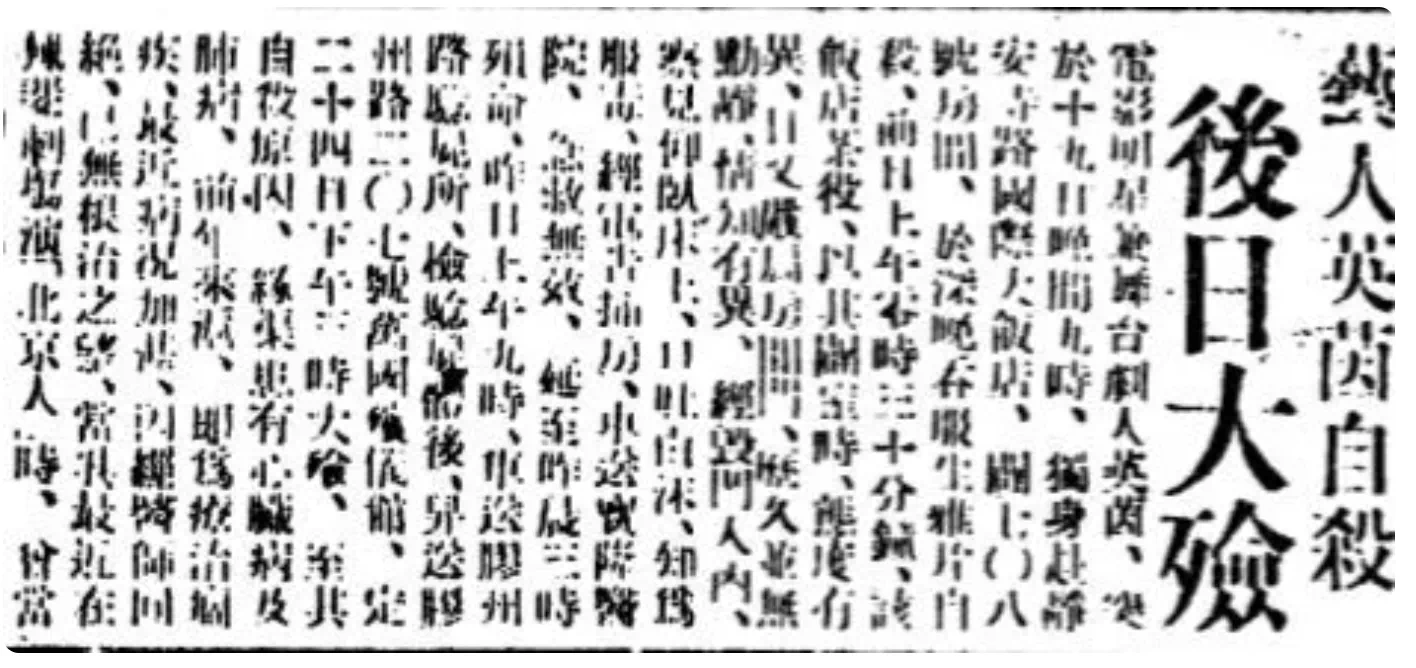 藝人英茵自殺
後日大殮
電影明星兼舞台劇人英茵、突
於十九日晚間九時、獨身赴靜
安寺路國際大飯店、闢七〇八
號房間、於深晚吞服生雅片自
殺、前日上午零時三十分鐘、該
飯店茶役、以其闢室時、態度有
異、且又關房間、歷久並無
動靜、情知有異、經毀門入內、
察見仰臥床上、口吐白沫、知爲
服毒、經電告捕房、車送寶隆醫
院、急救無效、延至昨晨三時
殞命、昨日上午九時、車送膠州
路驗屍所、檢驗屍體後、舁送膠
州路二〇七號萬國殯儀館、定
二十四日下午三時大殮、至其
自殺原因、緣渠患有心臟病及
肺病、前年來滬、即爲療治痼
疾、最近病況加甚、因經醫師回
絕、已無根治之望、當其最近在
辣斐劇場演「北京人」時、曾當